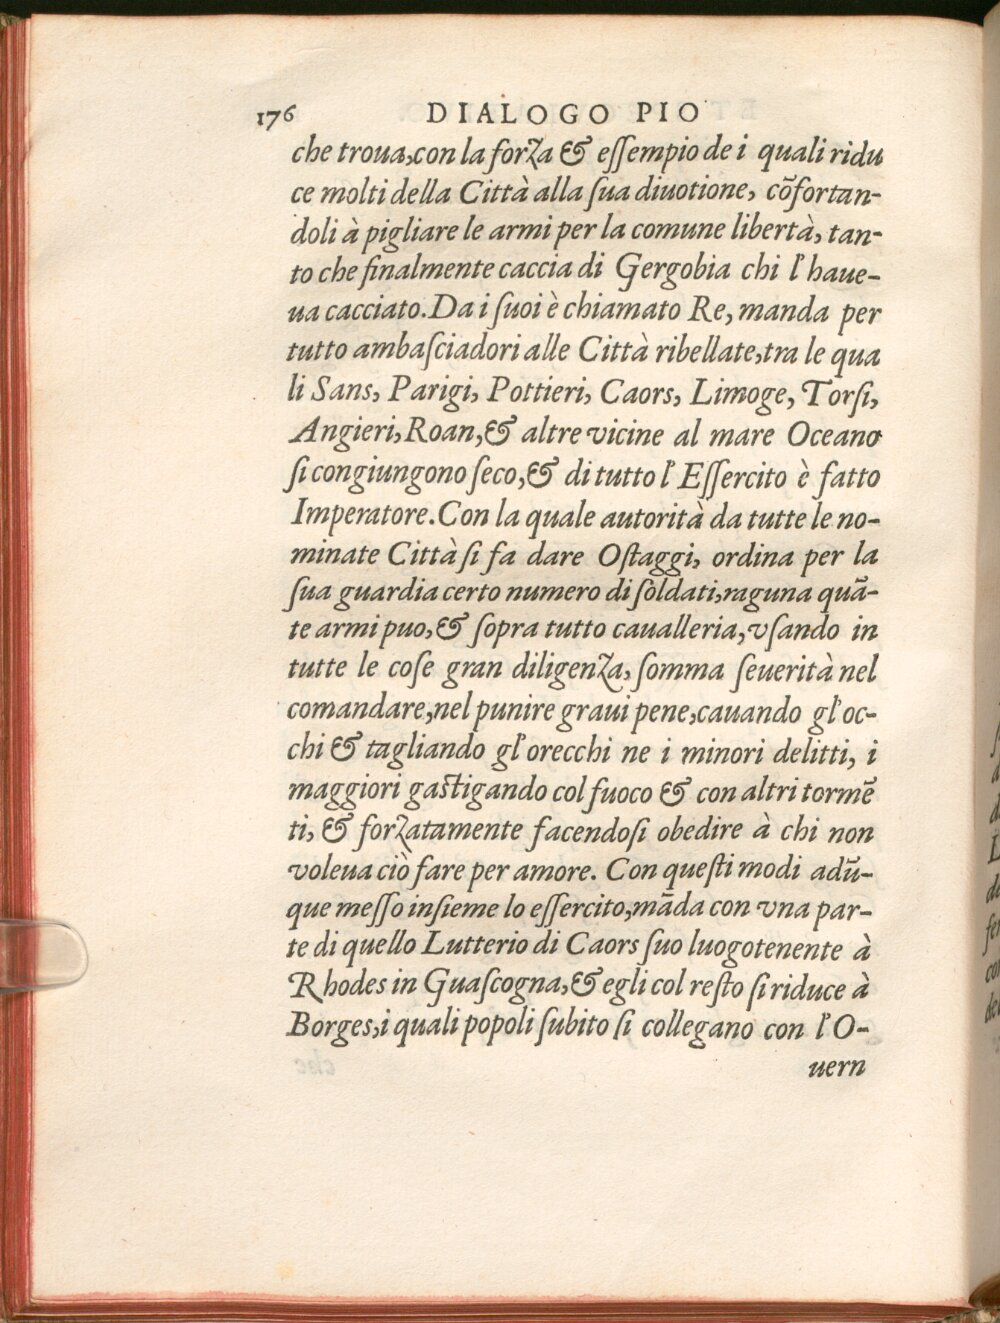 176 DIALOGO PIO
che troua, con la forza & eſſempio de i quali ridu
ce molti della Città alla ſua diuotione, cõfortan-
doli à pigliare le armi per la comune libertà, tan-
to che finalmente caccia di Gergobia chi l'haue-
ua cacciato. Da i ſuoi è chiamato Re, manda per
tutto ambaſciadori alle Città ribellate, tra le qua
li Sans, Parigi, Pottieri, Caors, Limoge, Torſi,
Angieri, Roan, & altre vicine al mare Oceano
ſi congiungono ſeco, & di tutto l'Eſſercito è fatto
Imperatore. Con la quale autorità da tutte le no-
minate Città ſi fa dare Oſtaggi, ordina per la
ſua guardia certo numero di ſoldati, raguna quã-
te armi puo, & ſopra tutto caualleria, vſando in
tutte le coſe gran diligenza, ſomma ſeuerità nel
comandare, nel punire graui pene, cauando gl'oc-
chi & tagliando gl'orecchi ne i minori delitti, i
maggiori gaſtigando col fuoco & con altri tormẽ
ti, & forzatamente facendoſi obedire à chi non
voleua ciò fare per amore. Con queſti modi adũ-
que meſſo inſieme lo eſſercito, mãda con vna par-
te di quello Lutterio di Caors ſuo luogotenente à
Rhodes in Guaſcogna, & egli col reſto ſi riduce à
Borges, i quali popoli ſubito ſi collegano con l'O-
uern